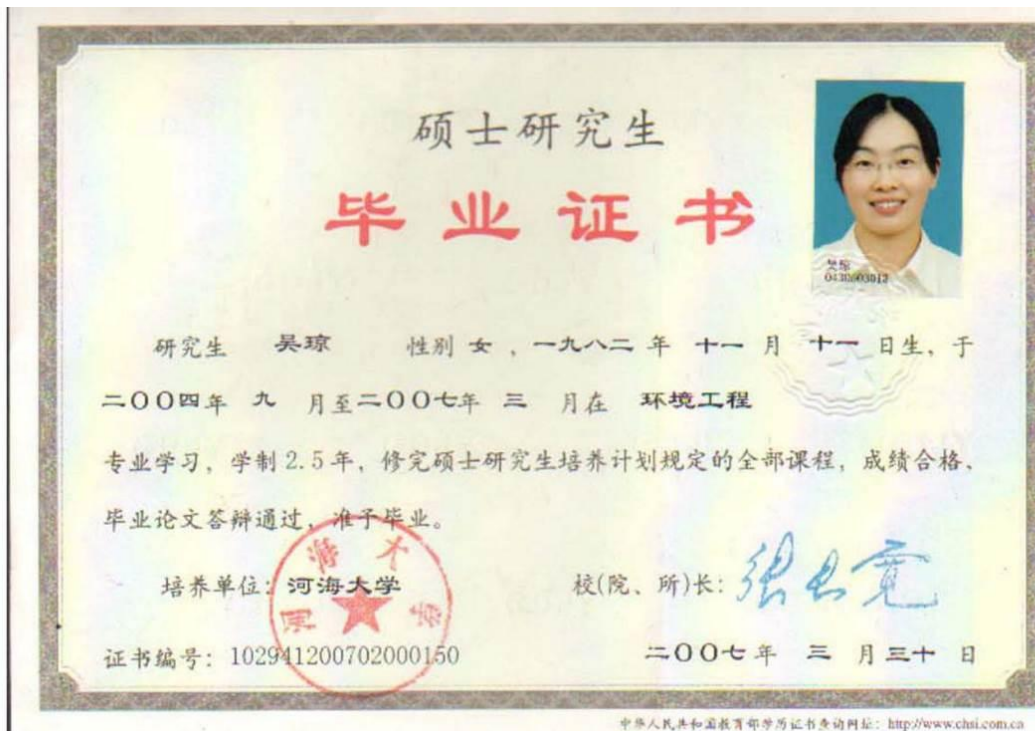 硕士研究生
毕业证书
吴琼
0430503012
研究生 吴琼 性别 女 , 一九八二 年 十一 月 十一 日生, 于
二〇〇四年 九 月至二〇〇七年 三 月在 环境工程
专业学习, 学制 2.5 年, 修完硕士研究生培养计划规定的全部课程, 成绩合格、
毕业论文答辩通过, 准予毕业。
培养单位: 河海大学
河海大学
校(院、所)长: 张长宽
证书编号: 102941200702000150
二〇〇七年 三 月三十 日
中华人民共和国教育部学历证书查询网址: http://www.chsi.com.cn